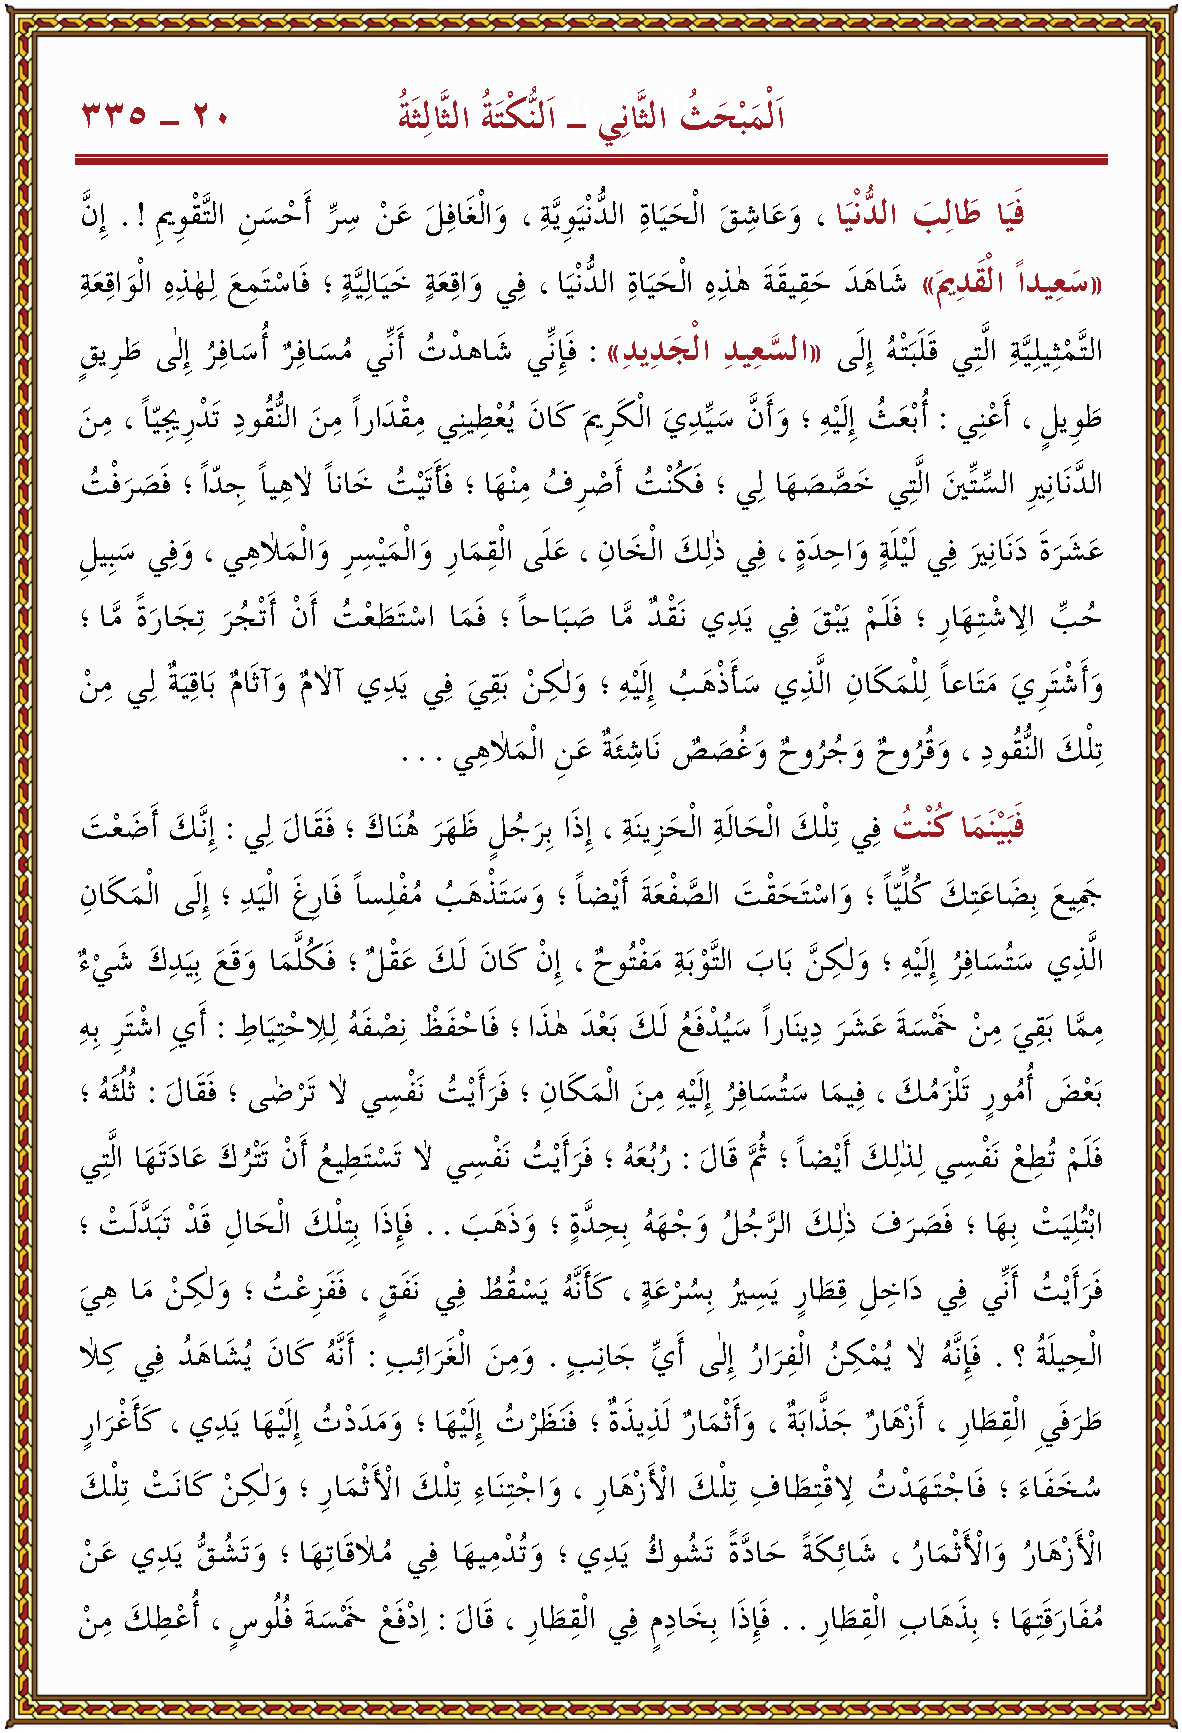 اَلْمَبْحَثُ الثَّانِي ـ اَلنُّكْتَةُ الثَّالِثَةُ ٢٠ ـ ٣٣٥
فَيَا طَالِبَ الدُّنْيَا ، وَعَاشِقَ الْحَيَاةِ الدُّنْيَوِيَّةِ ، وَالْغَافِلَ عَنْ سِرِّ أَحْسَنِ التَّقْوِيمِ ! . إِنَّ
«سَعِيداً الْقَدِيمَ» شَاهَدَ حَقِيقَةَ هٰذِهِ الْحَيَاةِ الدُّنْيَا ، فِي وَاقِعَةٍ خَيَالِيَّةٍ ؛ فَاسْتَمِعَ لِهٰذِهِ الْوَاقِعَةِ
التَّمْثِيلِيَّةِ الَّتِي قَلَبَتْهُ إِلَى «السَّعِيدِ الْجَدِيدِ» : فَإِنِّي شَاهَدْتُ أَنِّي مُسَافِرٌ أُسَافِرُ إِلٰى طَرِيقٍ
طَوِيلٍ ، أَعْنِي : أُبْعَثُ إِلَيْهِ ؛ وَأَنَّ سَيِّدِيَ الْكَرِيمَ كَانَ يُعْطِينِي مِقْدَاراً مِنَ النُّقُودِ تَدْرِيجِيّاً ، مِنَ
الدَّنَانِيرِ السِّتِّينَ الَّتِي خَصَّصَهَا لِي ؛ فَكُنْتُ أَصْرِفُ مِنْهَا ؛ فَأَتَيْتُ خَاناً لَاهِياً جِدّاً ؛ فَصَرَفْتُ
عَشَرَةَ دَنَانِيرَ فِي لَيْلَةٍ وَاحِدَةٍ ، فِي ذٰلِكَ الْخَانِ ، عَلَى الْقِمَارِ وَالْمَيْسِرِ وَالْمَلَاهِي ، وَفِي سَبِيلِ
حُبِّ الِاشْتِهَارِ ؛ فَلَمْ يَبْقَ فِي يَدِي نَقْدٌ مَّا صَبَاحاً ؛ فَمَا اسْتَطَعْتُ أَنْ أَتْجُرَ تِجَارَةً مَّا ؛
وَأَشْتَرِيَ مَتَاعاً لِلْمَكَانِ الَّذِي سَأَذْهَبُ إِلَيْهِ ؛ وَلٰكِنْ بَقِيَ فِي يَدِي آلَامٌ وَآثَامٌ بَاقِيَةٌ لِي مِنْ
تِلْكَ النُّقُودِ ، وَقُرُوحٌ وَجُرُوحٌ وَغُصَصٌ نَاشِئَةٌ عَنِ الْمَلَاهِي . . .
فَبَيْنَمَا كُنْتُ فِي تِلْكَ الْحَالَةِ الْحَزِينَةِ ، إِذَا بِرَجُلٍ ظَهَرَ هُنَاكَ ؛ فَقَالَ لِي : إِنَّكَ أَضَعْتَ
جَمِيعَ بِضَاعَتِكَ كُلِّيّاً ؛ وَاسْتَحَقْتَ الصَّفْعَةَ أَيْضاً ؛ وَسَتَذْهَبُ مُفْلِساً فَارِغَ الْيَدِ ؛ إِلَى الْمَكَانِ
الَّذِي سَتُسَافِرُ إِلَيْهِ ؛ وَلٰكِنَّ بَابَ التَّوْبَةِ مَفْتُوحٌ ، إِنْ كَانَ لَكَ عَقْلٌ ؛ فَكُلَّمَا وَقَعَ بِيَدِكَ شَيْءٌ
مِمَّا بَقِيَ مِنْ خَمْسَةَ عَشَرَ دِينَاراً سَيُدْفَعُ لَكَ بَعْدَ هٰذَا ؛ فَاحْفَظْ نِصْفَهُ لِلِاحْتِيَاطِ : أَيِ اشْتَرِ بِهِ
بَعْضَ أُمُورٍ تَلْزَمُكَ ، فِيمَا سَتُسَافِرُ إِلَيْهِ مِنَ الْمَكَانِ ؛ فَرَأَيْتُ نَفْسِي لَا تَرْضٰى ؛ فَقَالَ : ثُلُثَهُ ؛
فَلَمْ تُطِعْ نَفْسِي لِذٰلِكَ أَيْضاً ؛ ثُمَّ قَالَ : رُبُعَهُ ؛ فَرَأَيْتُ نَفْسِي لَا تَسْتَطِيعُ أَنْ تَتْرُكَ عَادَتَهَا الَّتِي
ابْتُلِيَتْ بِهَا ؛ فَصَرَفَ ذٰلِكَ الرَّجُلُ وَجْهَهُ بِحِدَّةٍ ؛ وَذَهَبَ . . فَإِذَا بِتِلْكَ الْحَالِ قَدْ تَبَدَّلَتْ ؛
فَرَأَيْتُ أَنِّي فِي دَاخِلِ قِطَارٍ يَسِيرُ بِسُرْعَةٍ ، كَأَنَّهُ يَسْقُطُ فِي نَفَقٍ ، فَفَزِعْتُ ؛ وَلٰكِنْ مَا هِيَ
الْحِيلَةُ ؟ . فَإِنَّهُ لَا يُمْكِنُ الْفِرَارُ إِلٰى أَيِّ جَانِبٍ . وَمِنَ الْغَرَائِبِ : أَنَّهُ كَانَ يُشَاهَدُ فِي كِلَا
طَرَفَيِ الْقِطَارِ ، أَزْهَارٌ جَذَّابَةٌ ، وَأَثْمَارٌ لَذِيذَةٌ ؛ فَنَظَرْتُ إِلَيْهَا ؛ وَمَدَدْتُ إِلَيْهَا يَدِي ، كَأَغْرَارٍ
سُخَفَاءَ ؛ فَاجْتَهَدْتُ لِاقْتِطَافِ تِلْكَ الْأَزْهَارِ ، وَاجْتِنَاءِ تِلْكَ الْأَثْمَارِ ؛ وَلٰكِنْ كَانَتْ تِلْكَ
الْأَزْهَارُ وَالْأَثْمَارُ ، شَائِكَةً حَادَّةً تَشُوكُ يَدِي ؛ وَتُدْمِيهَا فِي مُلَاقَاتِهَا ؛ وَتَشُقُّ يَدِي عَنْ
مُفَارَقَتِهَا ؛ بِذَهَابِ الْقِطَارِ . . فَإِذَا بِخَادِمٍ فِي الْقِطَارِ ، قَالَ : اِدْفَعْ خَمْسَةَ فُلُوسٍ ، أُعْطِكَ مِنْ